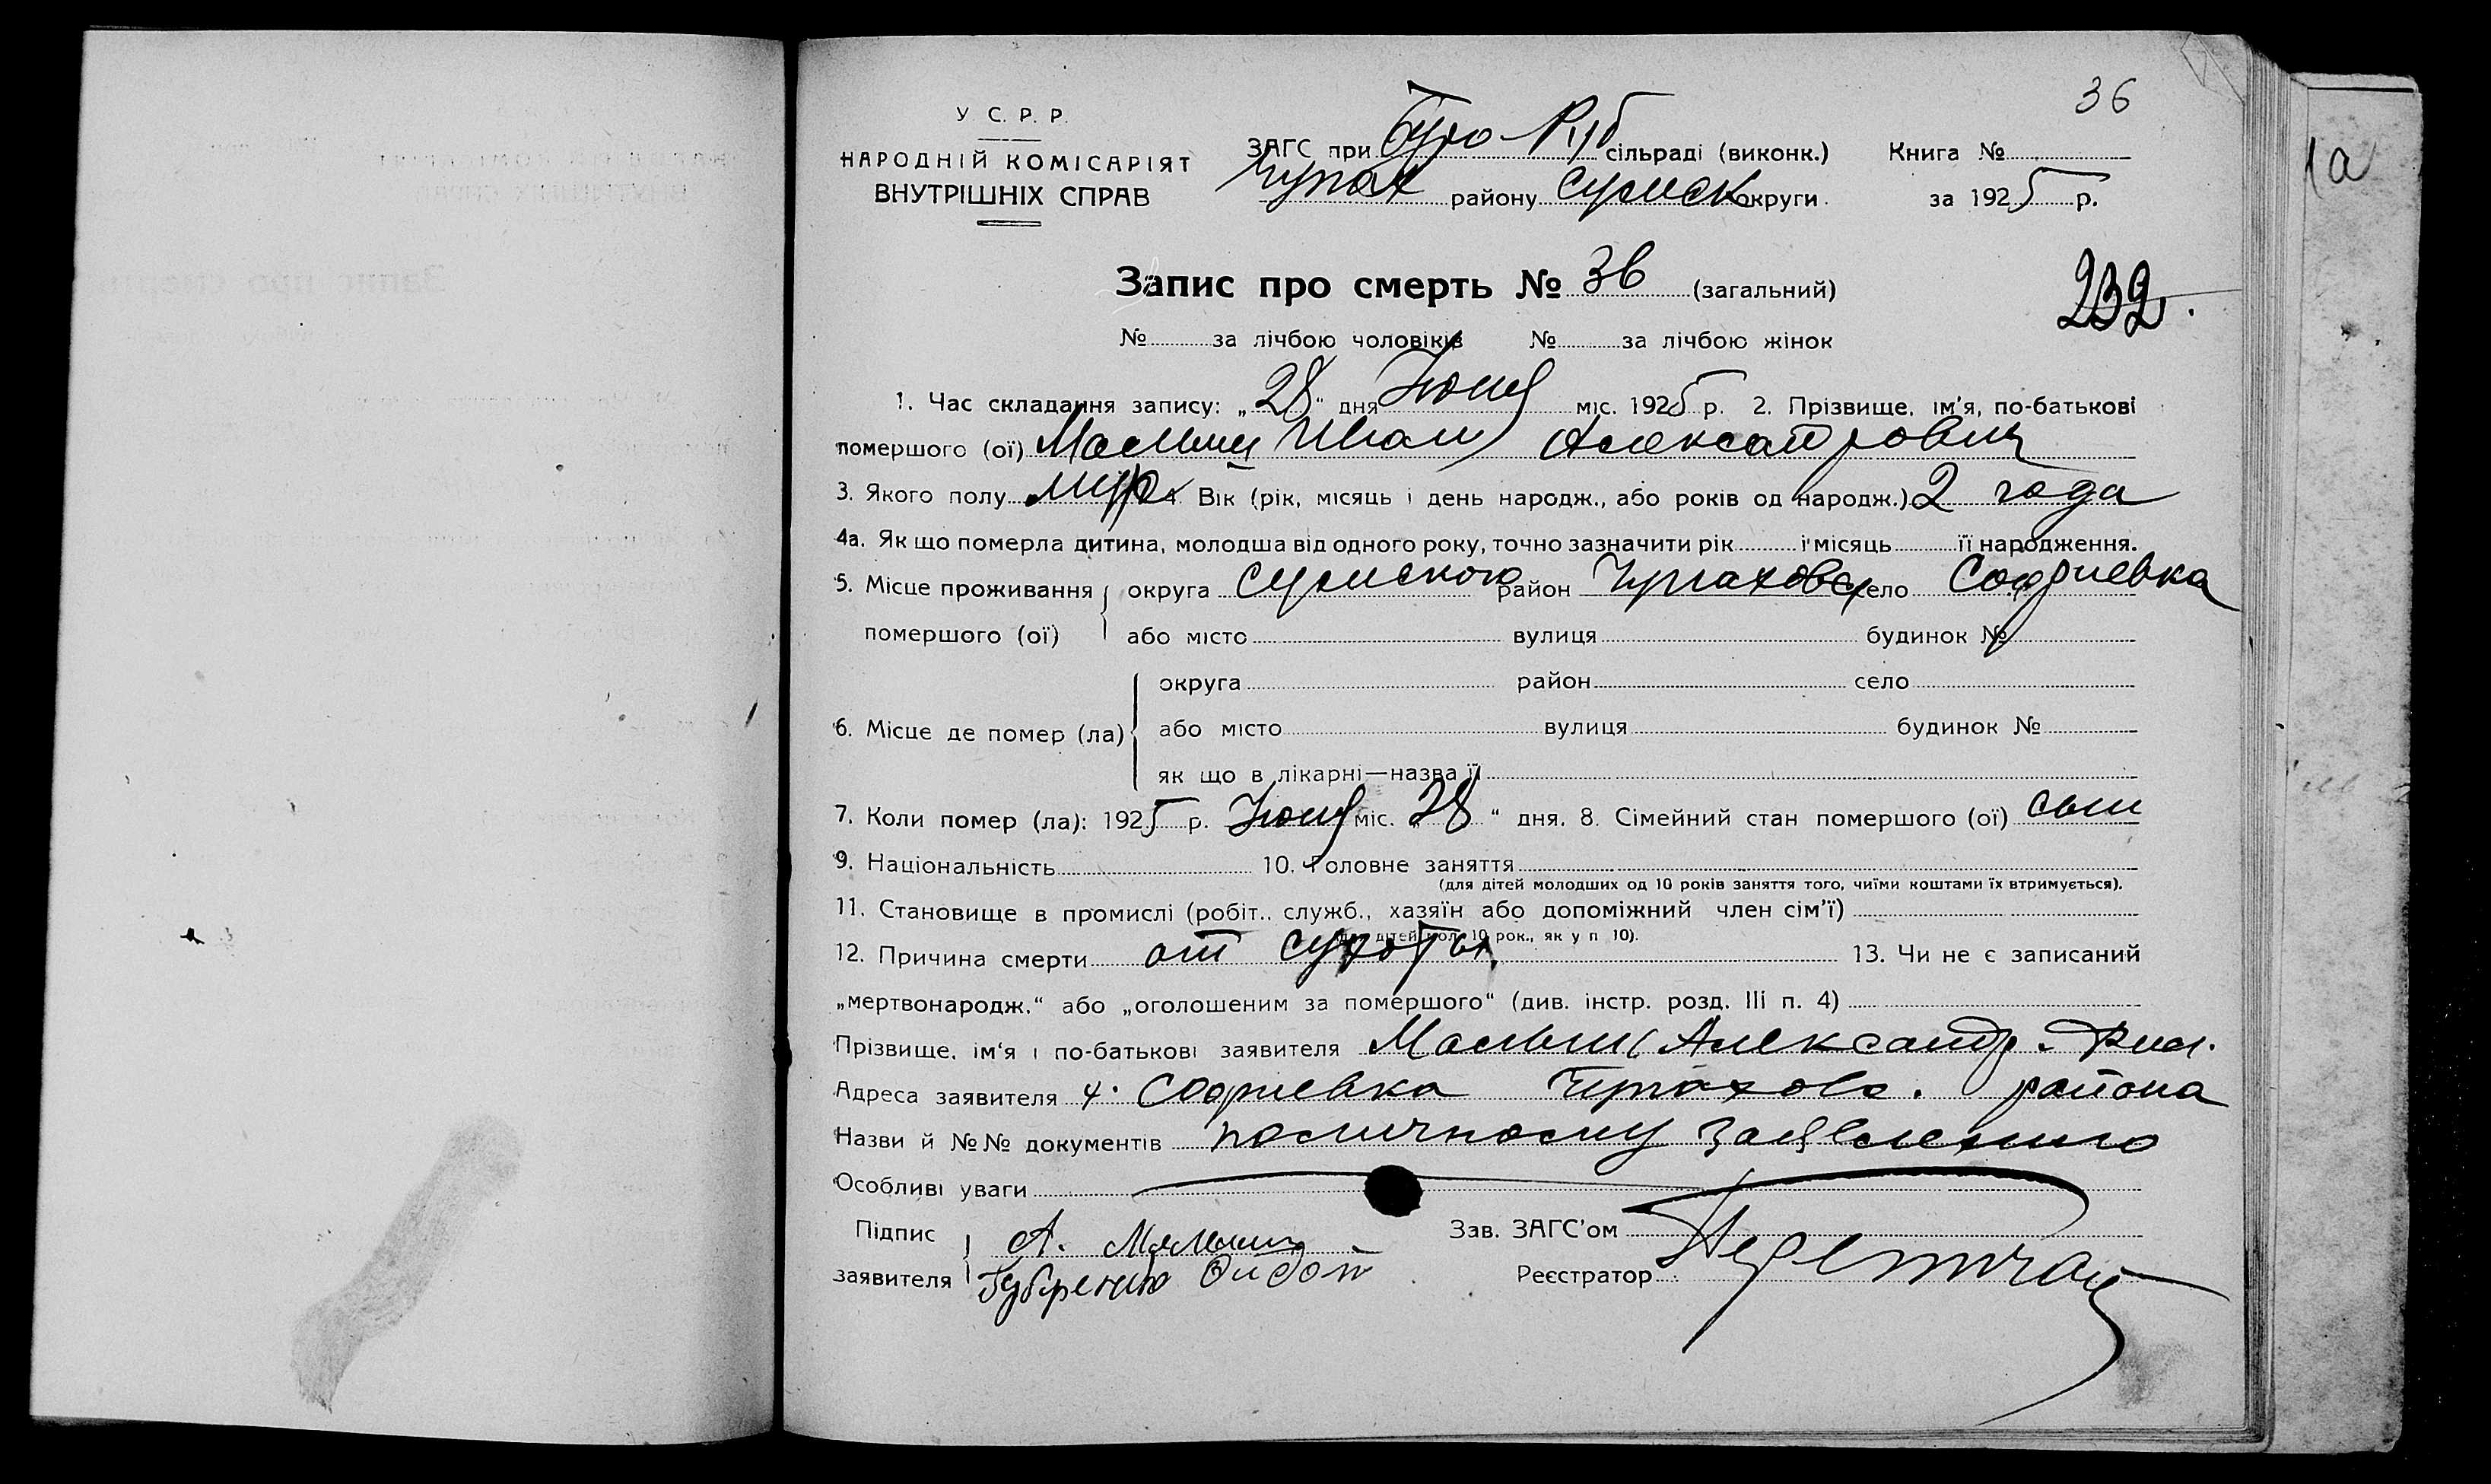 36
У С. Р. Р.
НАРОДНІЙ КОМІСАРІЯТ
ВНУТРІШНІХ СПРАВ
ЗАГС при сільраді (виконк.) Книга №
району Сумск округи за 1925 р.
1а
Запис про смерть № 36 (загальний)
232.
№ за лічбою чоловіків № за лічбою жінок
1. Час складання запису: „28“ дня Июня міс. 1925 р. 2. Прізвище, ім'я, по-батькові
помершого (ої) Иван Александрович
3. Якого полу муж 4. Вік (рік, місяць і день народж., або років од народж.) 2 года
4а. Як що померла дитина, молодша від одного року, точно зазначити рік і місяць її народження.
5. Місце проживання округа Сумского район село Софиевка
помершого (ої) або місто вулиця будинок №
округа район село
6. Місце де помер (ла) або місто вулиця будинок №
як що в лікарні—назва її
7. Коли помер (ла): 1925 р. Июня міс. „28“ дня. 8. Сімейний стан помершого (ої) сын
9. Національність 10. Головне заняття
(для дітей молодших од 10 років заняття того, чиїми коштами їх втримується).
11. Становище в промислі (робіт., служб., хазяїн або допоміжний член сім'ї)
(для дітей мол. 10 рок., як у п 10).
12. Причина смерти от сухоты 13. Чи не є записаний
„мертвонародж.“ або „оголошеним за помершого“ (див. інстр. розд. III п. 4)
Прізвище, ім'я і по-батькові заявителя Александр
Адреса заявителя х. Софиевка района
Назви й №№ документів по личному заявлению
Особливі уваги
Підпис А. Зав. ЗАГС'ом
заявителя Реєстратор